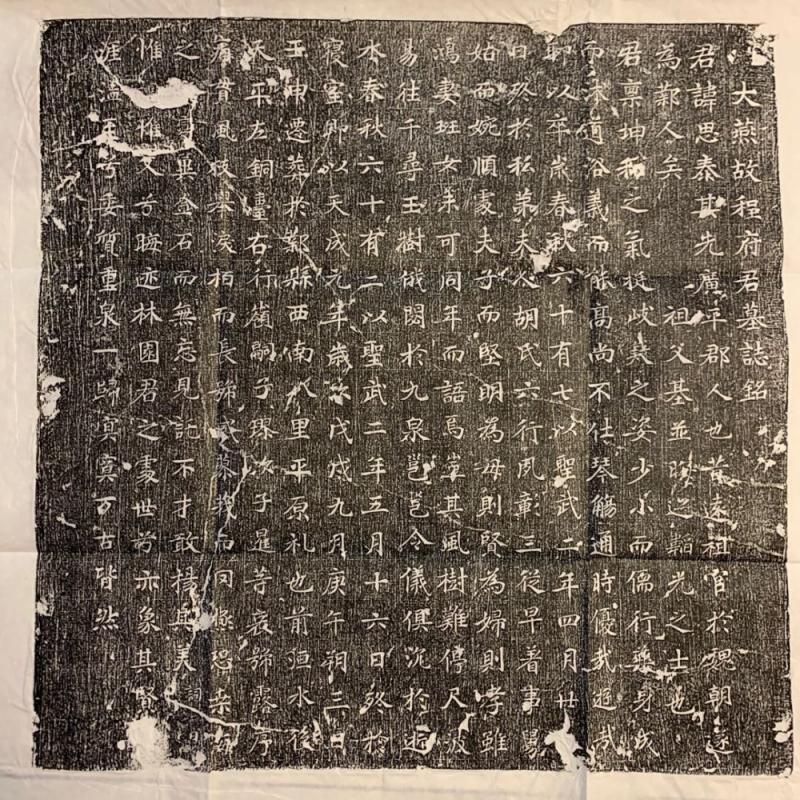 大燕故程府君墓誌銘
君諱思泰其先廣平郡人也昔遠祖官於魏朝遂
為鄴人矣 祖父基並曜迹韜光之士也
君稟坤和之氣挺岐嶷之姿少小而儒行藻身成
而不一義而能高尚不仕琴觴通時優哉遊哉
聊以卒歲春秋六十有七以聖武二年四月廿
日歿於私第夫人胡氏六行夙彰三從早著事舅
姑而婉順處夫子而堅明為母則賢為婦則孝雖
鴻妻班女未可同年而語焉豈其風樹難停尺波
易往千尋玉樹俄閟於九泉邕邕令儀俱沉於逝
水春秋六十有二以聖武二年五月十六日歿於
寢室即以天成元年歲次戊戌九月庚午朔三日
壬申遷葬於鄴縣西南八里平原礼也前洹水後
天平左銅臺右行嶺嗣子璆次子是等哀號露序
而長號而同極恐
之冀金石而無忘見託不才敢揚其美詞曰
惟惟父兮晦迹林園君之處世兮亦象其賢
兮委質重泉一歸冥寞万古皆然